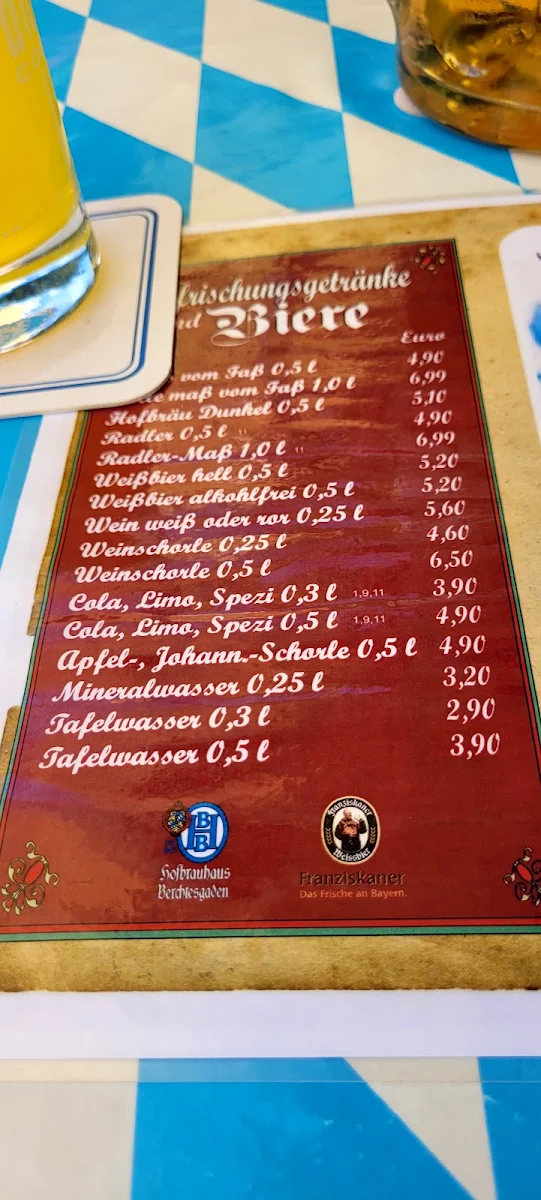 frischungsgetränke
nd Biere
Euro
vom Faß 0,5 l 4,90
maß vom Faß 1,0 l 6,99
Hofbräu Dunkel 0,5 l 5,10
Radler 0,5 l 11 4,90
Radler-Maß 1,0 l 11 6,99
Weißbier hell 0,5 l 5,20
Weißbier alkohlfrei 0,5 l 5,20
Wein weiß oder ror 0,25 l 5,60
Weinschorle 0,25 l 4,60
Weinschorle 0,5 l 6,50
Cola, Limo, Spezi 0,3 l 1,9,11 3,90
Cola, Limo, Spezi 0,5 l 1,9,11 4,90
Apfel-, Johann.-Schorle 0,5 l 4,90
Mineralwasser 0,25 l 3,20
Tafelwasser 0,3 l 2,90
Tafelwasser 0,5 l 3,90
HBB
Hofbrauhaus
Berchtesgaden
Franziskaner
Weissbier
Franziskaner
Das Frische an Bayern.